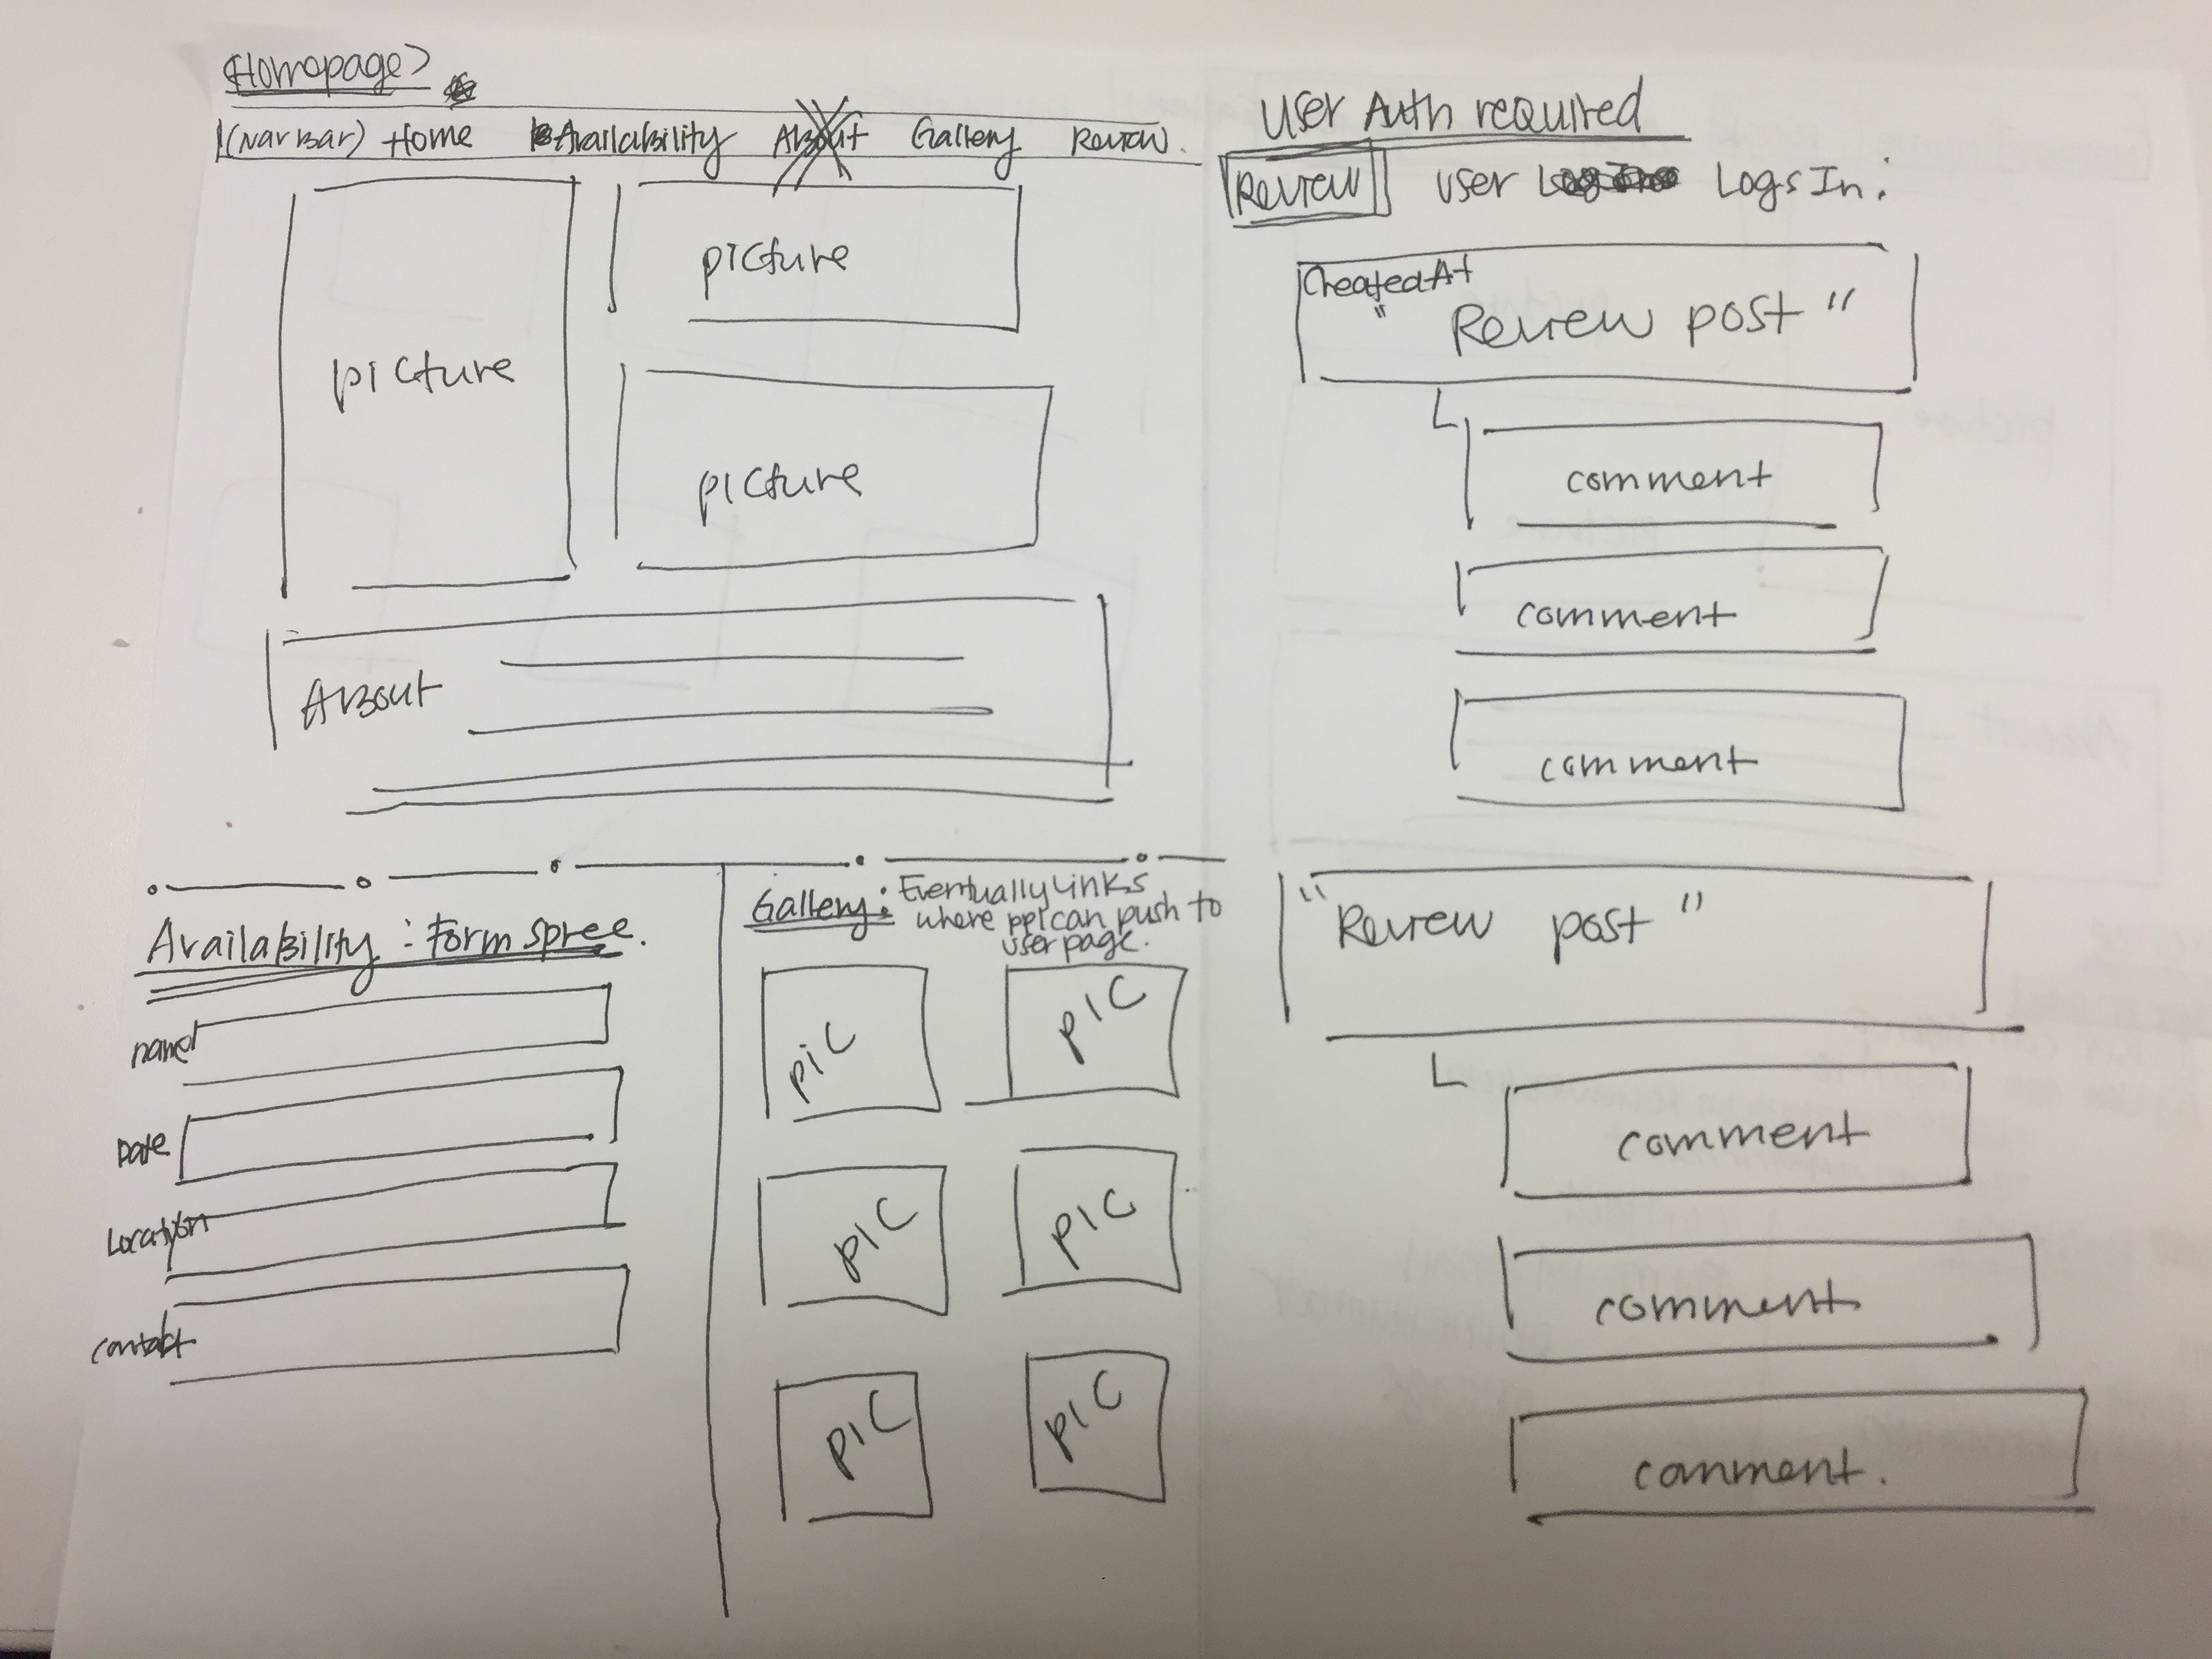 <Homepage>
(Navbar) Home Availability About Gallery Review
picture
picture
picture
About
Availability : Formspree.
name
Date
Location
contact
Gallery : Eventually Links
where ppl can push to
user page.
pic
pic
pic
pic
pic
pic
User Auth required
Review user Logs In :
CreatedAt
" Review post "
comment
comment
comment
" Review post "
comment
comment
comment.